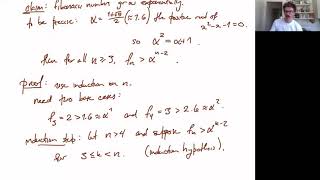 claim: Fibonacci numbers grow exponentially.
to be precise: α = (1+√5)/2 (≈1.6) the positive root of
x² - x - 1 = 0.
so α² = α+1
then for all n ≥ 3, fₙ > α^(n-2)
proof: use induction on n.
need two base cases:
f₃ = 2 > 1.6 ≈ α¹ and f₄ = 3 > 2.6 ≈ α²
induction step: let n > 4 and suppose fₖ > α^(k-2)
for 3 ≤ k < n. (induction hypothesis).